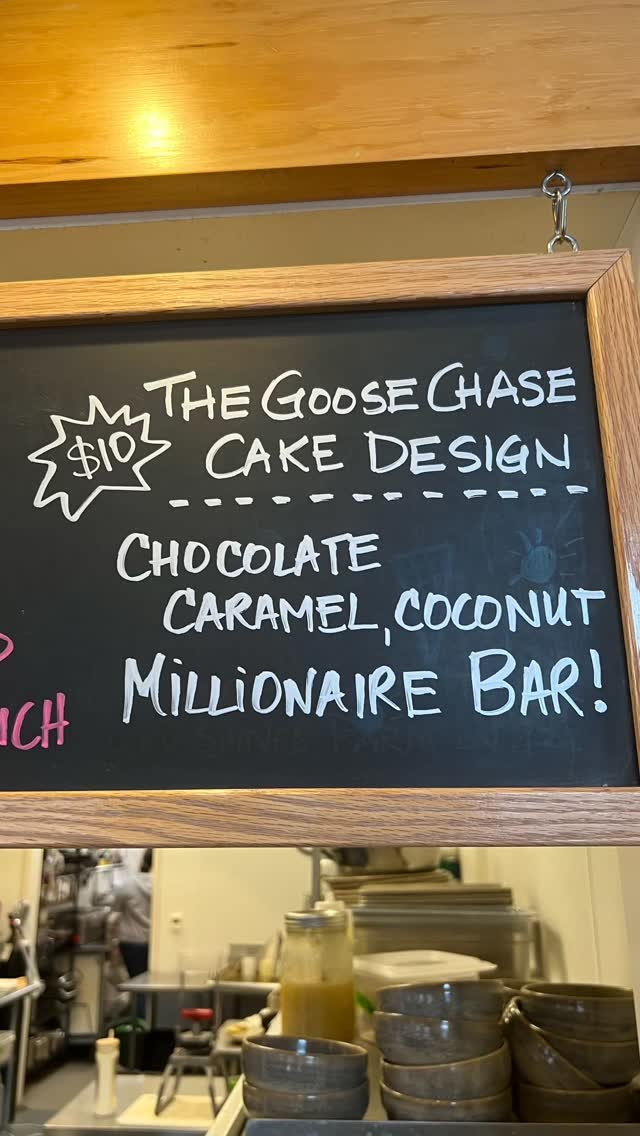 $10
THE GOOSE CHASE
CAKE DESIGN
CHOCOLATE
CARAMEL, COCONUT
MILLIONAIRE BAR!